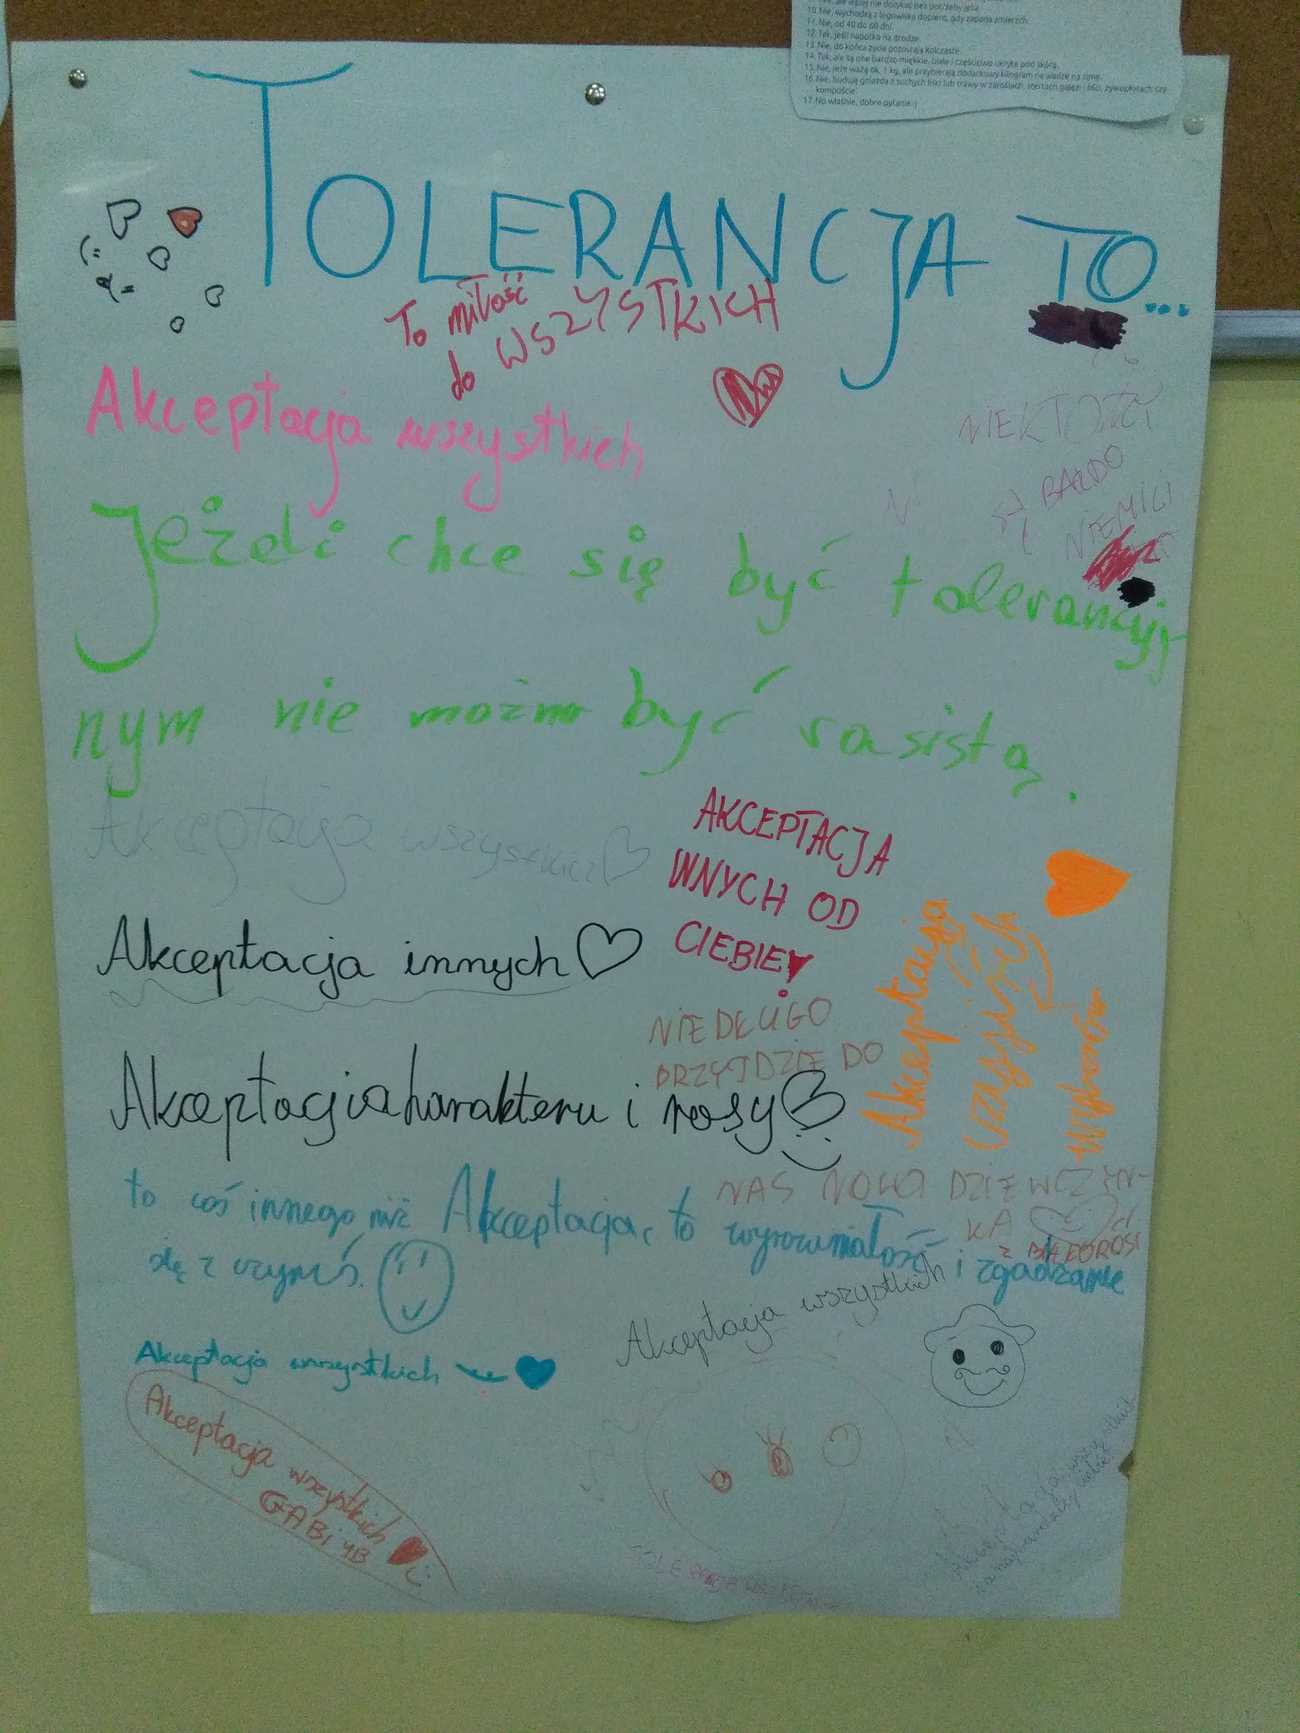 10. Nie, wychodzą z legowiska dopiero, gdy zapada zmierzch.
11. Nie, od 40 do 60 dni.
12. Tak, jeśli napotka na drodze.
13. Nie, do końca życia pozostają kolczaste.
14. Tak, ale są one bardzo miękkie, białe i częściowo ukryte pod skórą.
15. Nie, jeże ważą ok. 1 kg, ale przybierają dodatkowy kilogram na wadze na zimę.
16. Nie, budują gniazda z suchych liści lub trawy w zaroślach, stertach gałęzi i liści, żywopłotach czy
kompoście.
17. No właśnie, dobre pytanie :)
TOLERANCJA TO...
To miłość
do WSZYSTKICH
Akceptacja wszystkich
NIEKTÓRZY
SĄ BARDO
NIEMILI
Jeżdli chce się być tolerancyj
nym nie możno być rasistą.
Akceptacja wszystkich
AKCEPTACJA
WNYCH OD
CIEBIE
Akceptacja innych
Akceptacja
czyjiśch
Wyborów
NIEDŁUGO
PRZYJDZIE DO
Akceptacja harakteru i rasy
NAS NOWA DZIEWCZYN-
KA
Z BIAŁOROSI
to coś innego niż Akceptacja, to wyrozumiałość i zgadzanie
się z czymś.
Akceptacja wszystkich
Akceptacja wszystkich
Akceptacja wszystkich
GABi 4B